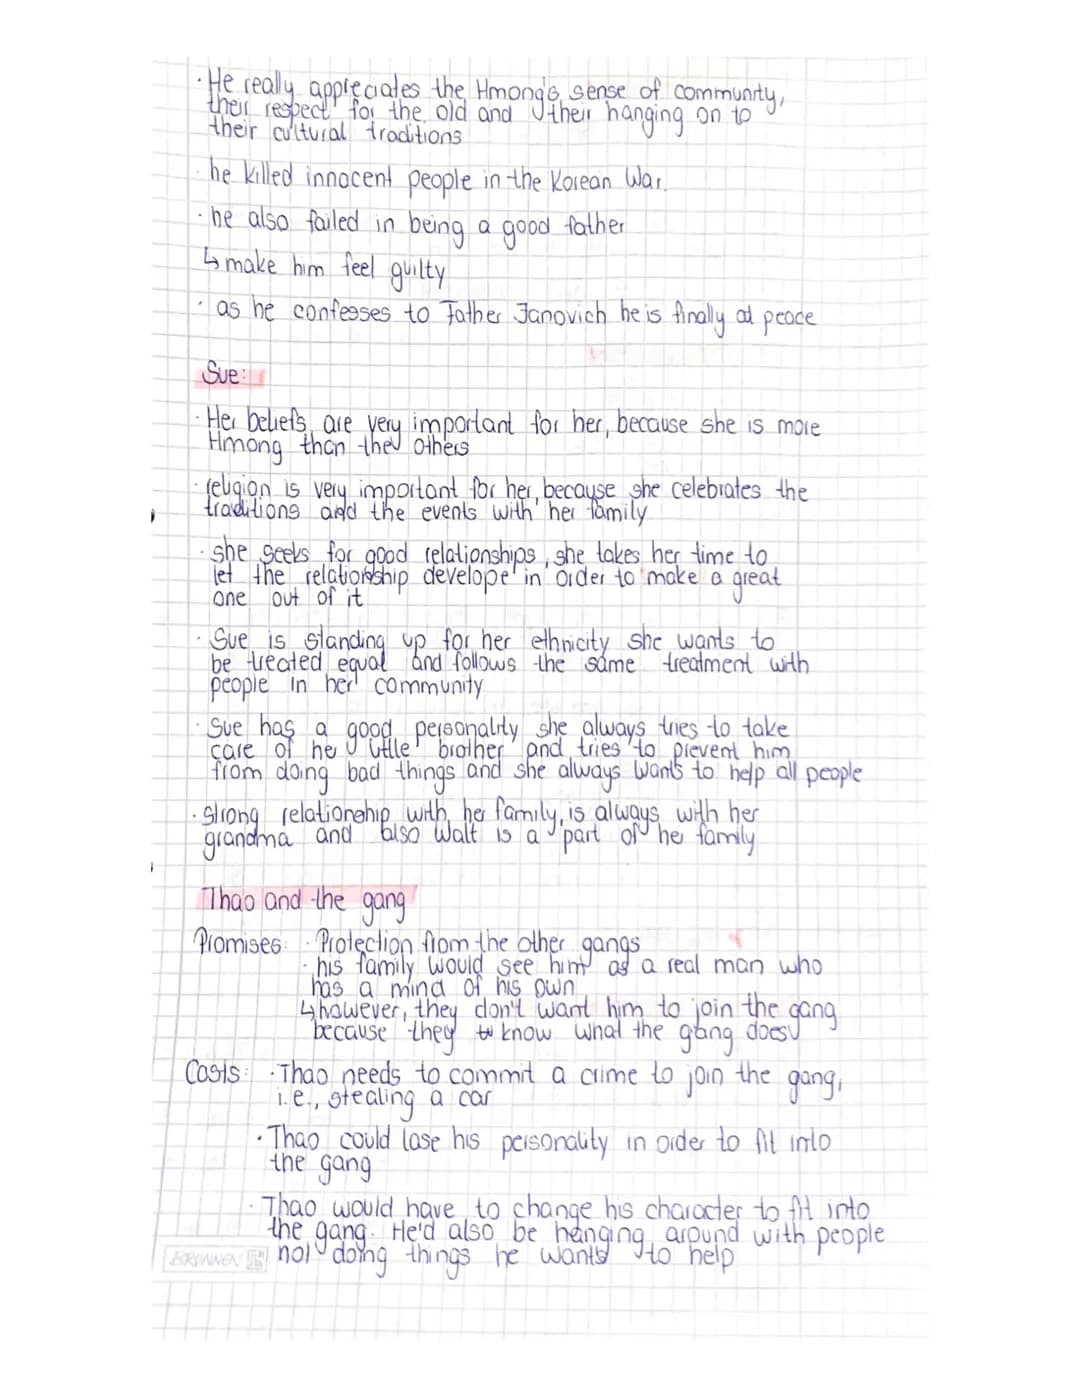 · He really appreciates the Hmong's sense of community,
their respect for the old and their hanging on to
their cultural traditions
· he killed innocent people in the Korean War.
· he also failed in being a good father
↳ make him feel guilty
· as he confesses to Father Janovich he is finally at peace
Sue:
· Her beliefs are very important for her, because she is more
Hmong than the others
· religion is very important for her, because she celebrates the
traditions and the events with her family
· she seeks for good relationships, she takes her time to
let the relationship develope in order to make a great
one out of it
· Sue is standing up for her ethnicity she wants to
be treated equal and follows the same treatment with
people in her community
· Sue has a good personality she always tries to take
care of her little brother and tries to prevent him
from doing bad things and she always wants to help all people
· strong relationship with her family, is always with her
grandma and also Walt is a part of her family
Thao and the gang
Promises: · Protection from the other gangs
· his family would see him as a real man who
has a mind of his own
↳ however, they don't want him to join the gang
because they know what the gang does
Costs: · Thao needs to commit a crime to join the gang,
i.e., stealing a car
· Thao could lose his personality in order to fit into
the gang
· Thao would have to change his character to fit into
the gang. He'd also be hanging around with people
not doing things he wants to help
BRUNNEN